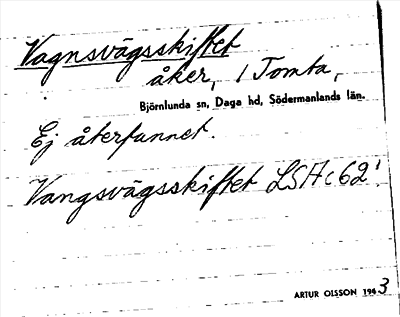 Vagnsvägsskiftet
åker, 1 Tomta,
Björnlunda sn, Daga hd, Södermanlands län.
Ej återfunnet.
Vangsvägsskiftet LSA c 62¹
ARTUR OLSSON 1963